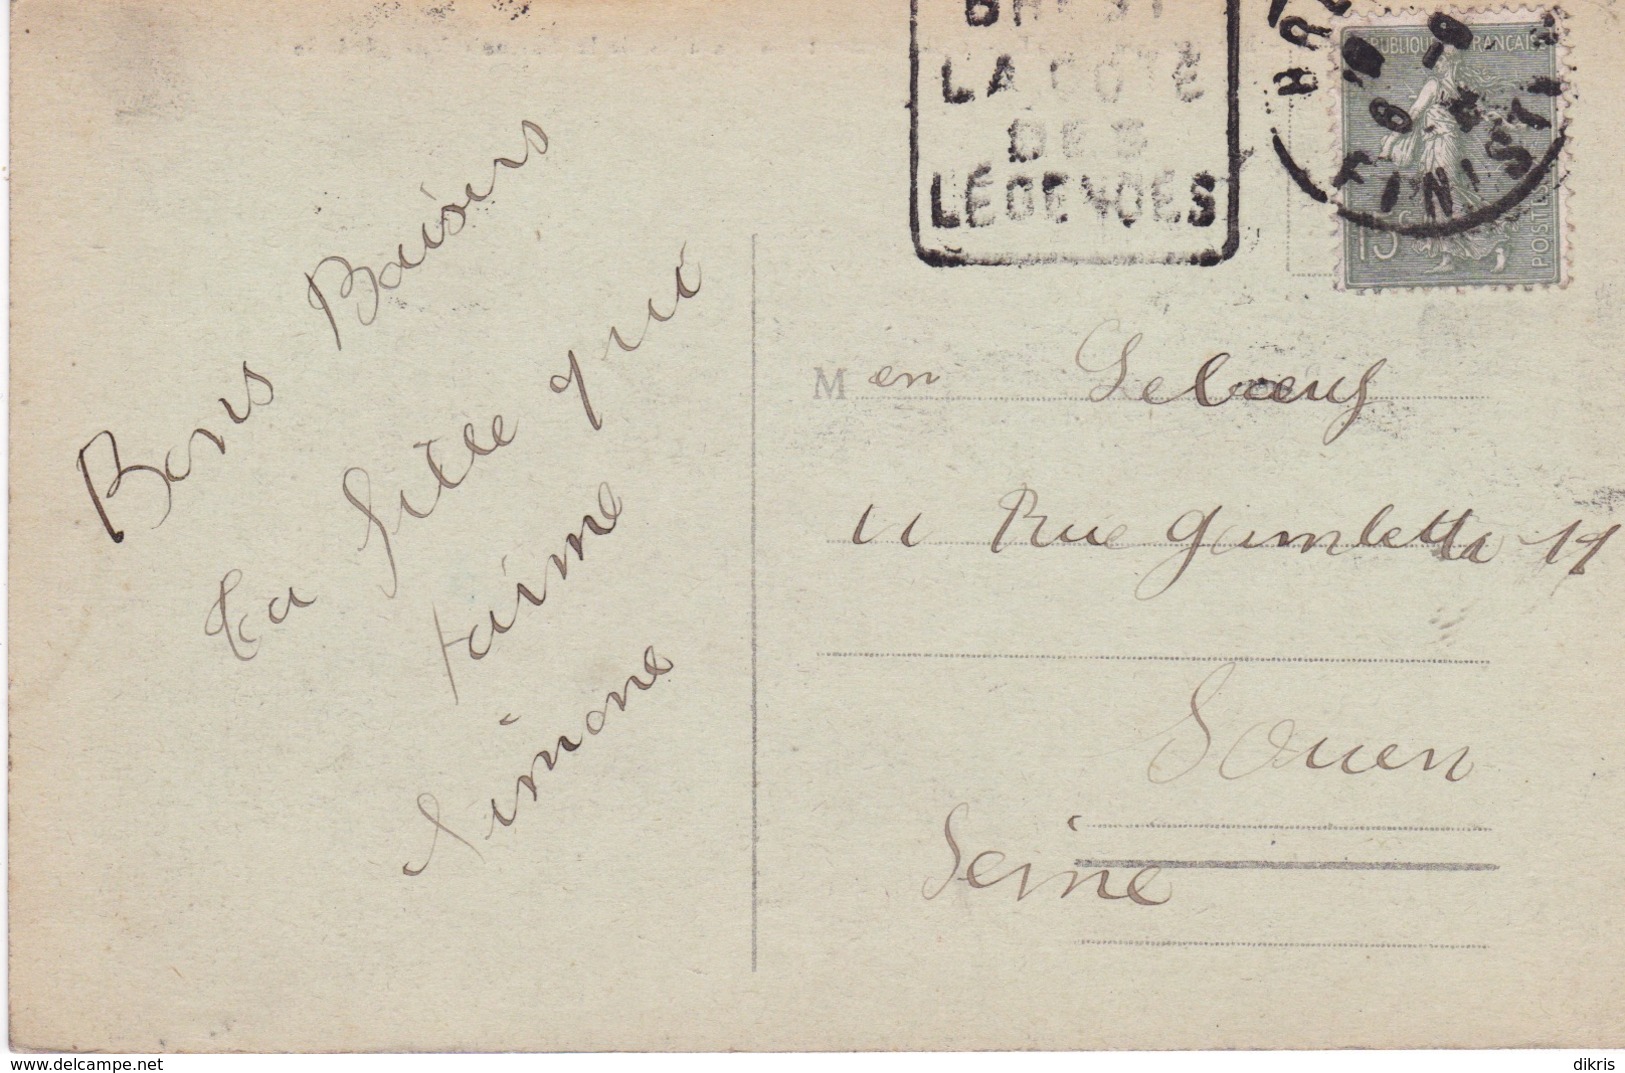 BREST
LA COTE
DES
LÉGENDES
BRE
FINIST
RÉPUBLIQUE FRANÇAISE
15c
POSTES
Bons Baisers
ta fille qui
t'aime
Simone
M en Lebœuf
11 Rue Gambetta 11
Souen
Seine
https://www.delcampe.net
dikris